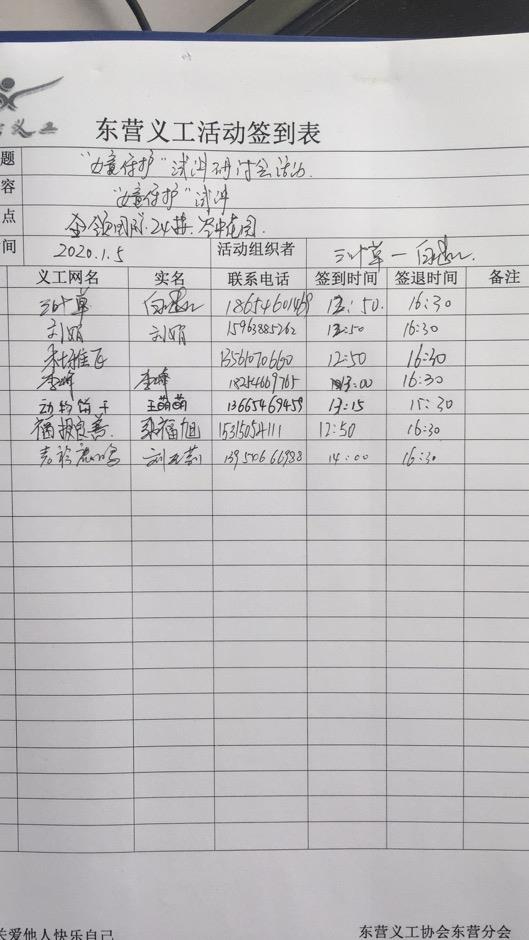 义工
东营义工活动签到表
题 "女童保护"试讲研讨会活动
容 "女童保护"试讲
点
间 2020.1.5 活动组织者 三叶草一
义工网名 实名 联系电话 签到时间 签退时间 备注
三叶草 :50. 16:30
刘娟 刘娟 15963885262 :50 16:30
13561070660 12:50 16:30
李峰 李峰 18254669765 :00 16:30
动物饼干 王萌萌 13665469459 13:15 15:30
福报良善. 福旭 15315054111 12:50 16:30
13950666988 14:00 16:30
关爱他人快乐自己 东营义工协会东营分会